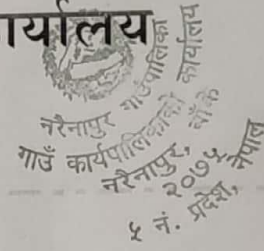 र्यालय
नरैनापुर गाउँपालिका
गाउँ कार्यपालिकाको कार्यालय
नरैनापुर, बाँके
२०७५
५ नं. प्रदेश, नेपाल